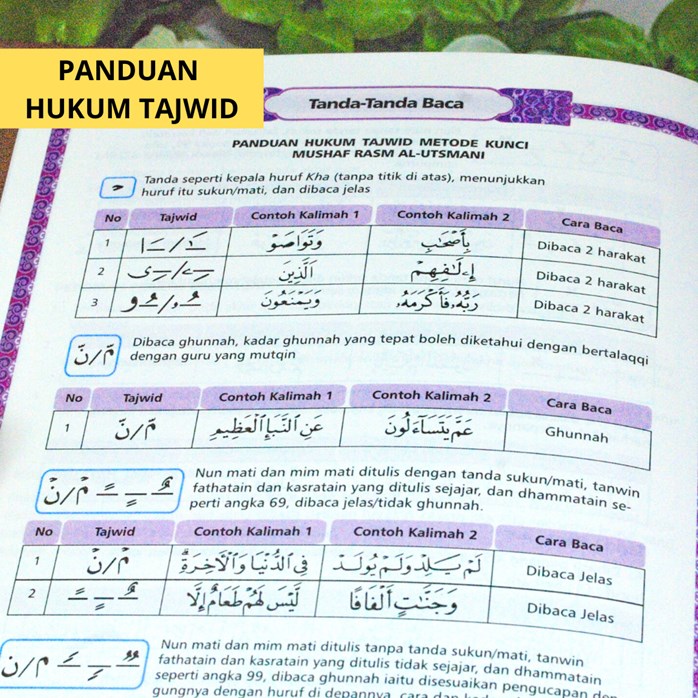 PANDUAN
HUKUM TAJWID
Tanda-Tanda Baca
PANDUAN HUKUM TAJWID METODE KUNCI
MUSHAF RASM AL-UTSMANI
Tanda seperti kepala huruf Kha (tanpa titik di atas), menunjukkan
huruf itu sukun/mati, dan dibaca jelas
No Tajwid Contoh Kalimah 1 Contoh Kalimah 2 Cara Baca
1 وَتَوَاصَوْ بِأَصْحَٰبِ Dibaca 2 harakat
2 الَّذِينَ إِۦلَٰفِهِمْ Dibaca 2 harakat
3 وَيَمْنَعُونَ رَبُّهُۥ فَأَكْرَمَهُۥ Dibaca 2 harakat
نّ/مّ
Dibaca ghunnah, kadar ghunnah yang tepat boleh diketahui dengan bertalaqqi
dengan guru yang mutqin
No Tajwid Contoh Kalimah 1 Contoh Kalimah 2 Cara Baca
1 نّ/مّ عَنِ النَّبَإِ الْعَظِيمِ عَمَّ يَتَسَآءَلُونَ Ghunnah
نْ/مْ
Nun mati dan mim mati ditulis dengan tanda sukun/mati, tanwin
fathatain dan kasratain yang ditulis sejajar, dan dhammatain se-
perti angka 69, dibaca jelas/tidak ghunnah.
No Tajwid Contoh Kalimah 1 Contoh Kalimah 2 Cara Baca
1 نْ/مْ فِي الدُّنْيَا وَالْآخِرَةِ لَمْ يَلِدْ وَلَمْ يُولَدْ Dibaca Jelas
2 لَيْسَ لَهُمْ طَعَامٌ إِلَّا وَجَنَّٰتٍ أَلْفَافًا Dibaca Jelas
ن/م
Nun mati dan mim mati ditulis tanpa tanda sukun/mati, tanwin
fathatain dan kasratain yang ditulis tidak sejajar, dan dhammatain
seperti angka 99, dibaca ghunnah iaitu disesuaikan pengucapan
gungnya dengan huruf di depannya, cara dan